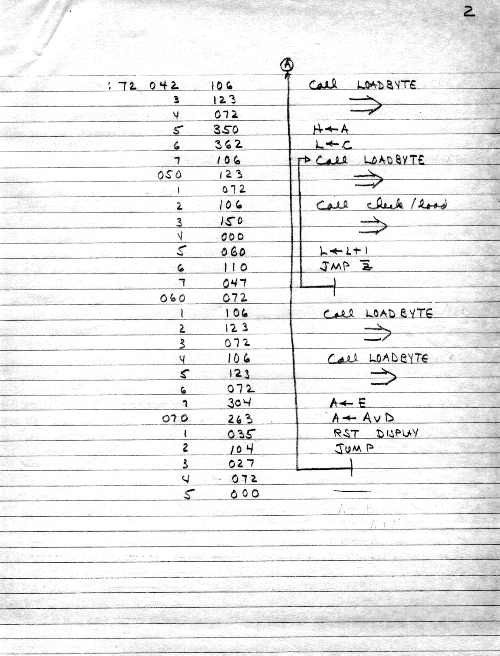 2
A
:72 042 106 Call LOADBYTE
3 123
4 072
5 350 H←A
6 362 L←C
7 106 Call LOADBYTE
050 123
1 072
2 106 Call check/load
3 150
4 000
5 060 L←L+1
6 110 JMP Z
7 047
060 072
1 106 Call LOADBYTE
2 123
3 072
4 106 Call LOADBYTE
5 123
6 072
7 304 A←E
070 263 A←AvD
1 035 RST DISPLAY
2 104 JUMP
3 027
4 072
5 000